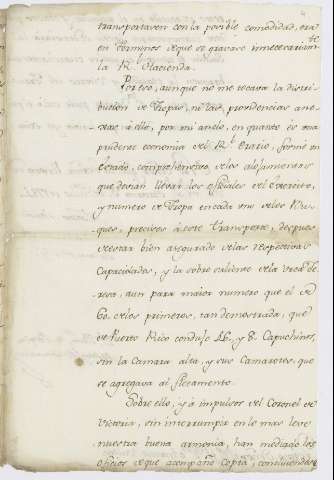 transportasen con la posible comodidad, era
en términos de que se gravase innecesariam.te
la R.l Hacienda.
Por eso, aunque no me tocava la distri-
bucion de Tropas, ni las providencias ane-
xas à ello, por mi anelo, en quanto es una
prudente economia del R.l Erario, formè un
Estado, comprehensivo de los
que devian llevar los oficiales del Exercito,
y numero de Tropa en cada uno de los Bu-
ques, precisos à este transporte, despues
de estar bien asegurado de las respectivas
Capacidades, y la sobresaliente de la
aun para maior numero que el de
60. de los primeros, tan demostrada, que
de Puerto Rico condujo 46. y 8. Capuchinos,
sin la Camara alta, y sus Camarotes, que
se agregava al fletamento.
Sobre ello, y à impulsos del Coronel de
Victoria, sin interrumpir en lo mas leve
nuestra buena armonia, han mediado los
oficios de que acompaño Copia, concluiendo